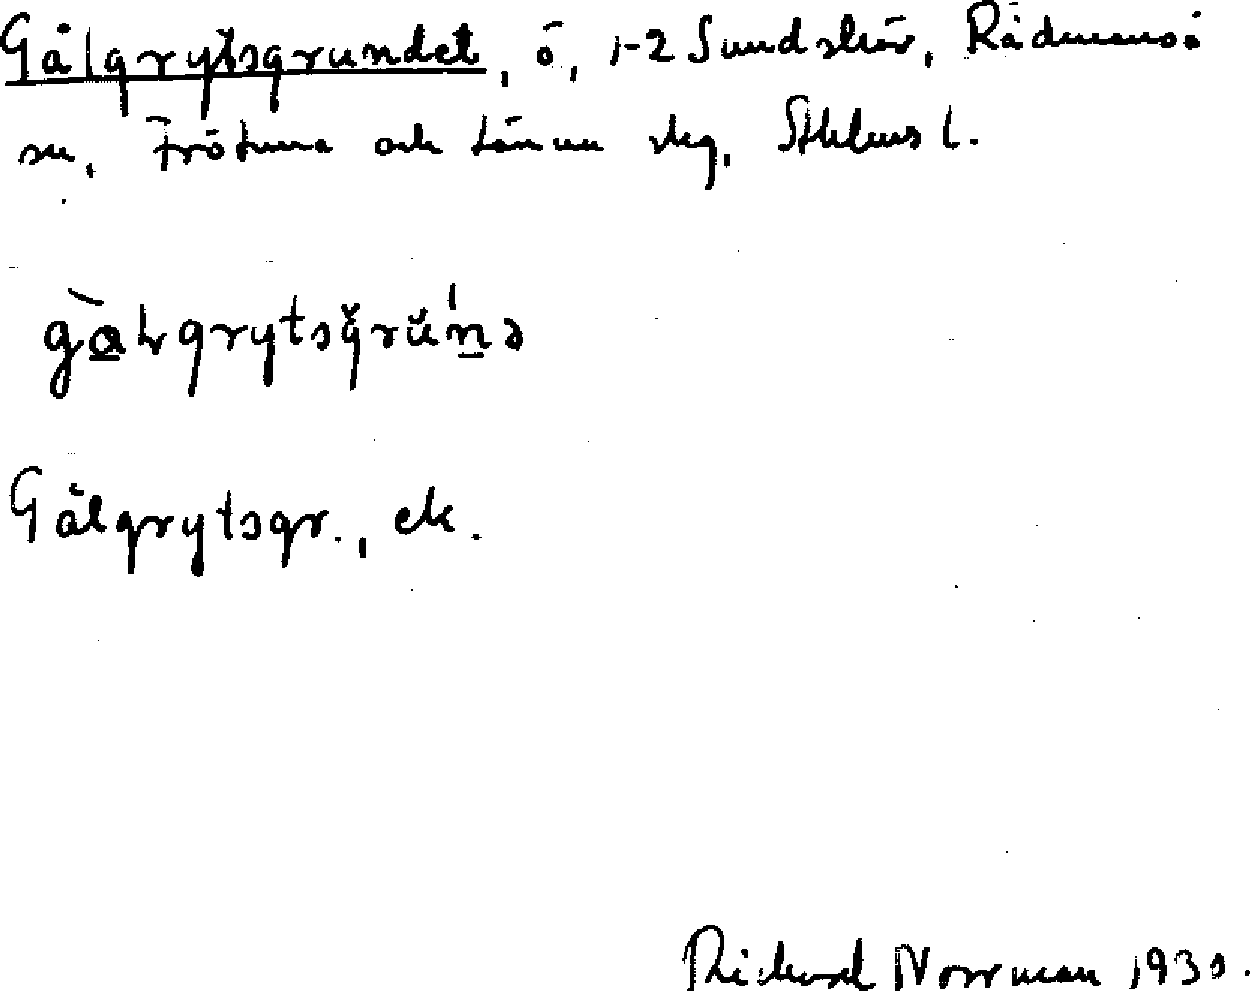 Gålgrytsgrundet, ö, 1-2 Sundskär, Rådmansö
sn, Frötuna och Länna skg, Sthlms l.
gàlgrytsgrŭ́nə
Gålgrytsgr., ek.
Richard Norrman 1930.